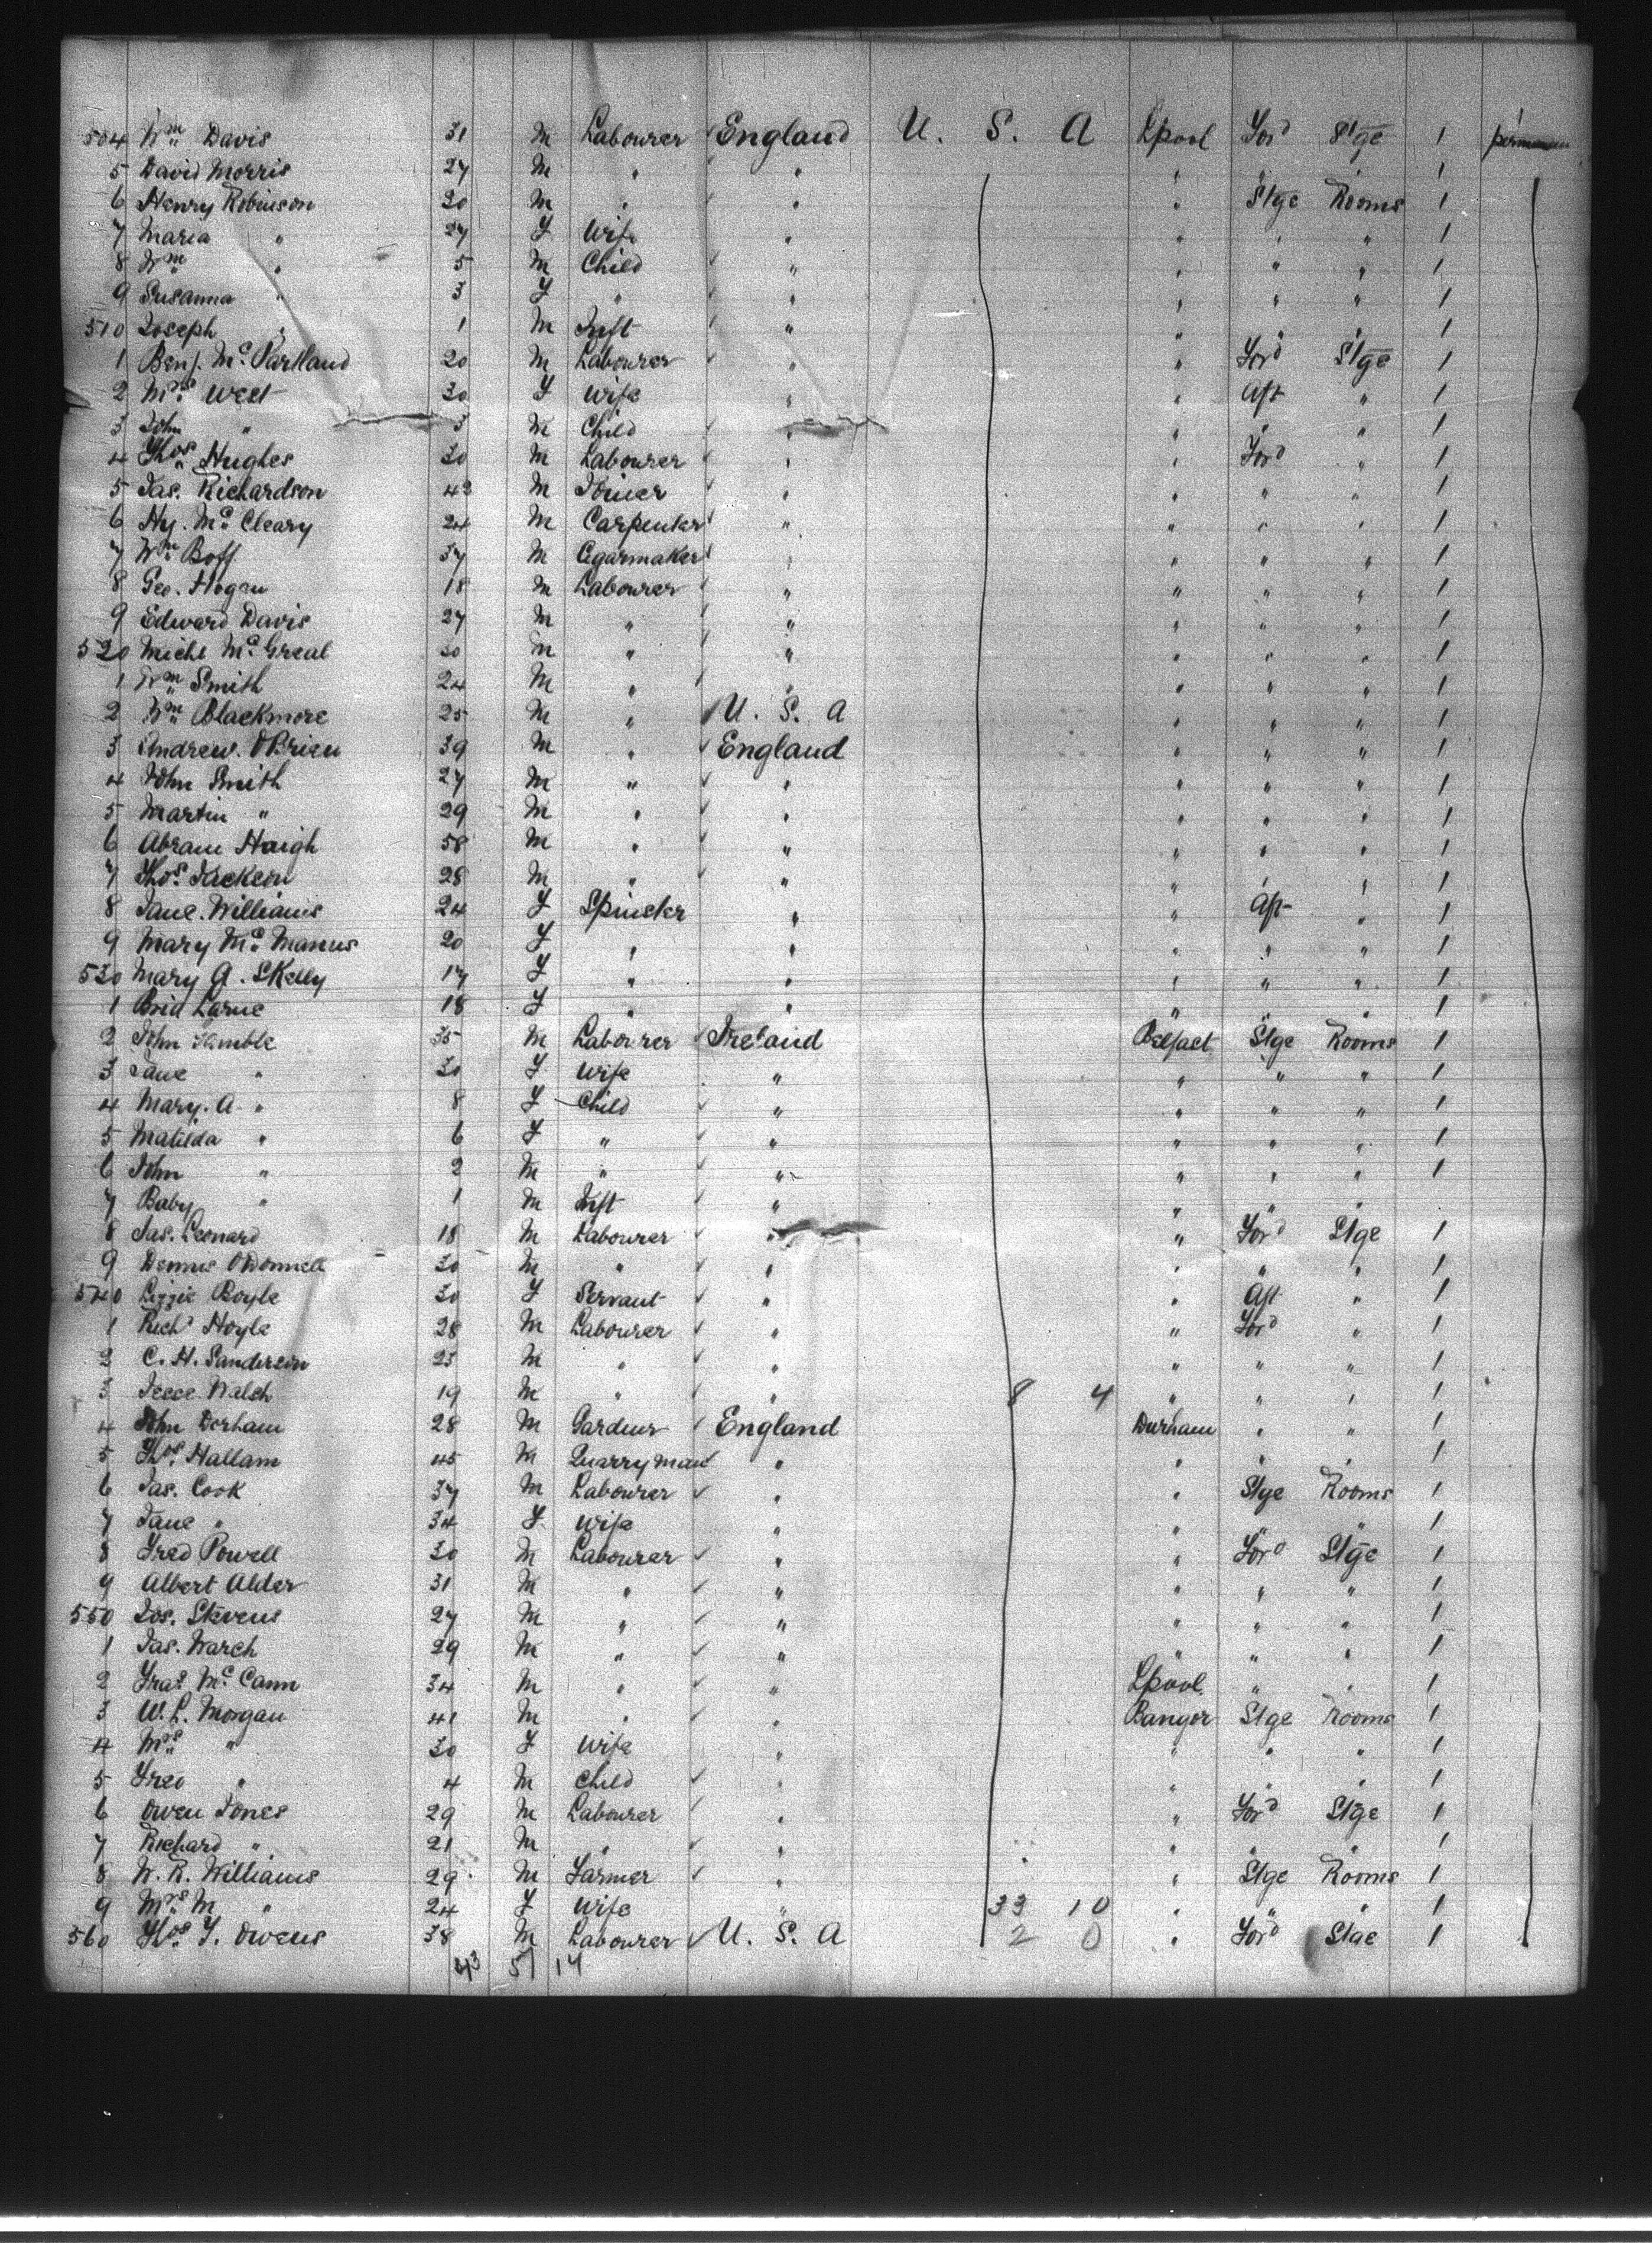 504 Wm Davis 31 M Labourer England U. S. A Lpool For'd Stge 1
5 David Morris 27 M " " " " " 1
6 Henry Robinson 30 M " " " Stge Rooms 1
7 Maria " 27 F Wife " " " " 1
8 Wm " 5 M Child " " " " 1
9 Susanna " 3 F " " " " " 1
510 Joseph " 1 M Inft " " " " 1
1 Benj. Mc Partland 20 M Labourer " " For'd Stge 1
2 Mrs West 30 F Wife " " Aft " 1
3 John " 3 M Child " " " " 1
4 Thos Hughes 30 M Labourer " " For'd " 1
5 Jas. Richardson 43 M Joiner " " " " 1
6 Hy. Mc Cleary 24 M Carpenter " " " " 1
7 Wm Boff 37 M Cigarmaker " " " " 1
8 Geo. Hogan 18 M Labourer " " " " 1
9 Edward Davis 27 M " " " " " 1
520 Michl Mc Greal 30 M " " " " " 1
1 Wm Smith 24 M " " " " " 1
2 Wm Blackmore 25 M " U. S. A " " " 1
3 Andrew. OBrien 39 M " England " " " 1
4 John Smith 27 M " " " " " 1
5 Martin " 29 M " " " " " 1
6 Abram Haigh 58 M " " " " " 1
7 Thos Jackson 28 M " " " " " 1
8 Jane. Williams 24 F Spinster " " Aft " 1
9 Mary Mc Manus 20 F " " " " " 1
530 Mary A. Skelly 17 F " " " " " 1
1 Brid Larne 18 F " " " " " 1
2 John 35 M Labourer Ireland Belfast Stge Rooms 1
3 Jane " 30 F Wife " " " " 1
4 Mary. A. " 8 F Child " " " " 1
5 Matilda " 6 F " " " " " 1
6 John " 2 M " " " " " 1
7 Baby " 1 M Inft " " " "
8 Jas. Leonard 18 M Labourer " " For'd Stge 1
9 Dennis ODonnell 30 M " " " " " 1
540 Lizzie Boyle 30 F Servant " " Aft " 1
1 Richd Hoyle 28 M Labourer " " For'd " 1
2 C. H. Sanderson 23 M " " " " " 1
3 Jesse. Walsh 19 M " " 8 4 " " " 1
4 John Dorham 28 M Gardner England Durham " " 1
5 Thos Hallam 45 M Quarryman " " " " 1
6 Jas. Cook 37 M Labourer " " Stge Rooms 1
7 Jane " 34 F Wife " " " " 1
8 Fred Powell 30 M Labourer " " For'd Stge 1
9 Albert Alder 31 M " " " " " 1
550 Jos. Stevens 27 M " " " " " 1
1 Jas. March 29 M " " " " " 1
2 Fras Mc Cann 34 M " " Lpool. " " 1
3 W. L. Morgan 41 M " " Bangor Stge Rooms 1
4 Mrs " 30 F Wife " " " " 1
5 Fred " 4 M Child " " " " 1
6 Owen Jones 29 M Labourer " " For'd Stge 1
7 Richard " 21 M " " " " " 1
8 W. R. Williams 29 M Farmer " " Stge Rooms 1
9 Mrs M " 24 F Wife " 33 10 " " " 1
560 Thos Y. Owens 38 M Labourer U. S. A 2 0 " For'd Stge 1
43 51 14